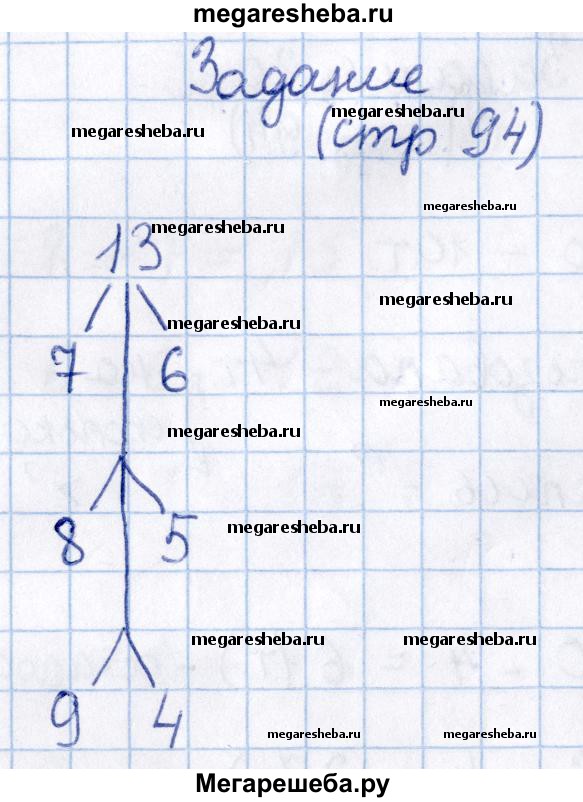 megaresheba.ru
Задание
megaresheba.ru
megaresheba.ru
(стр 94)
megaresheba.ru
13 megaresheba.ru
megaresheba.ru
megaresheba.ru
7 6
megaresheba.ru
megaresheba.ru
megaresheba.ru
8 5
megaresheba.ru megaresheba.ru
9 4
megaresheba.ru megaresheba.ru
Мегарешеба.ру